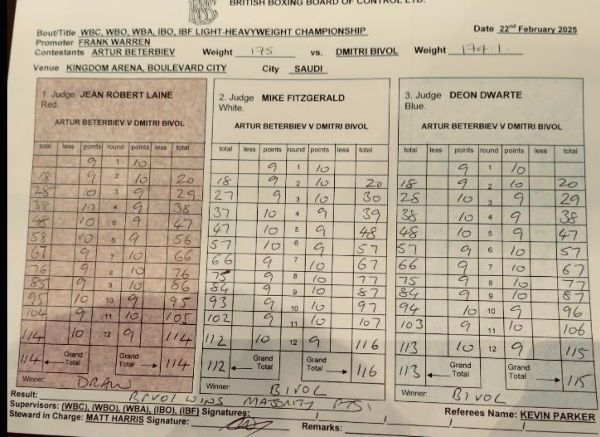 BRITISH BOXING BOARD OF CONTROL LTD.
Bout/Title WBC, WBO, WBA, IBO, IBF LIGHT-HEAVYWEIGHT CHAMPIONSHIP Date 22nd February 2025
Promoter FRANK WARREN
Contestants ARTUR BETERBIEV Weight 175 vs. DMITRI BIVOL Weight 174.1
Venue KINGDOM ARENA, BOULEVARD CITY City SAUDI
1. Judge JEAN ROBERT LAINE 2. Judge MIKE FITZGERALD 3. Judge DEON DWARTE
Red. White. Blue.
ARTUR BETERBIEV V DMITRI BIVOL ARTUR BETERBIEV V DMITRI BIVOL ARTUR BETERBIEV V DMITRI BIVOL
total less points round points less total total less points round points less total total less points round points less total
9 1 10 9 1 10 9 1 10
18 9 2 10 20 18 9 2 10 20 18 9 2 10 20
28 10 3 9 29 27 9 3 10 30 28 10 3 9 29
38 10 4 9 38 37 10 4 9 39 38 10 4 9 38
48 10 5 9 47 47 10 5 9 48 48 10 5 9 47
58 10 6 9 56 57 10 6 9 57 57 9 6 10 57
67 9 7 10 66 66 9 7 10 67 66 9 7 10 67
76 9 8 10 76 75 9 8 10 77 75 9 8 10 77
85 9 9 10 86 84 9 9 10 87 84 9 9 10 87
95 10 10 9 95 93 9 10 10 97 94 10 10 9 96
104 9 11 10 105 102 9 11 10 107 103 9 11 10 106
114 10 12 9 114 112 10 12 9 116 113 10 12 9 115
114 Grand Total 114 112 Grand Total 116 113 Grand Total 115
Winner: DRAW Winner: BIVOL Winner: BIVOL
Result: BIVOL WINS MAJORITY PTS
Supervisors: (WBC), (WBO), (WBA), (IBO), (IBF) Signatures: Referees Name: KEVIN PARKER
Steward in Charge: MATT HARRIS Signature: Remarks: